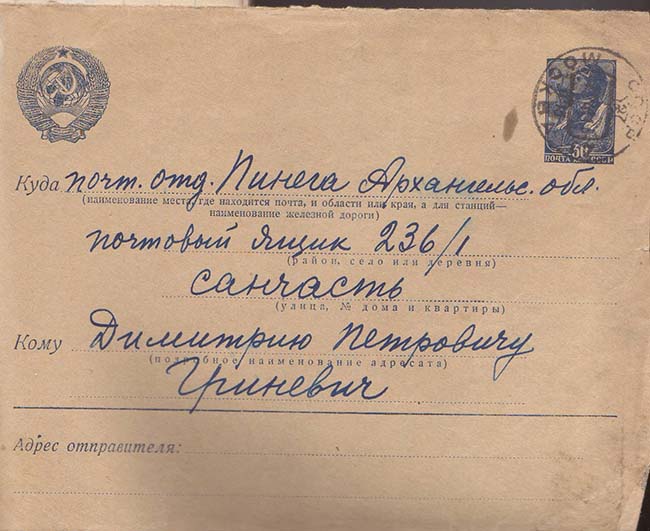 МОСКВА
СССР
30
ПОЧТА СССР
Куда почт. отд. Пинега Архангельс. обл.
(наименование места, где находится почта, и области или края, а для станций—
наименование железной дороги)
почтовый ящик 236/1
(район, село или деревня)
санчасть
(улица, № дома и квартиры)
Кому Димитрию Петровичу
(подробное наименование адресата)
Гриневич
Адрес отправителя: